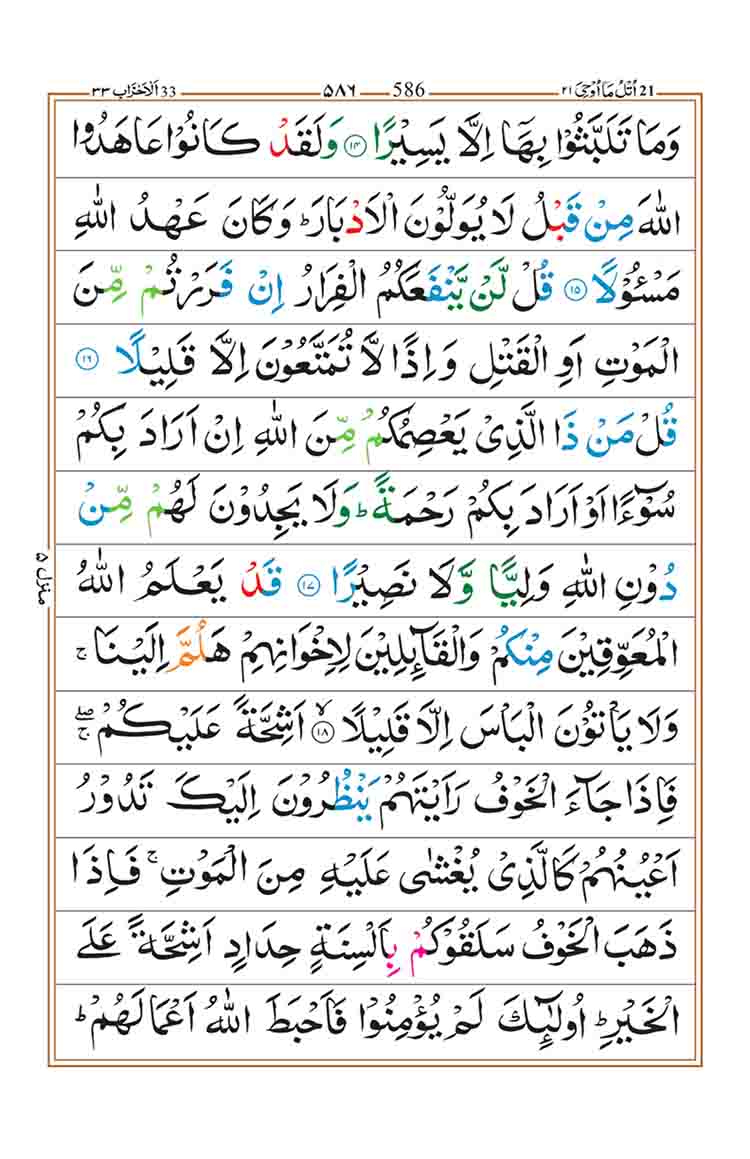 21 اُتْلُ مَآ اُوْحِیَ ۲۱ 586 ۵۸۶ 33 اَلْاَحْزَاب ۳۳
وَمَا تَلَبَّثُوْا بِهَاۤ اِلَّا يَسِيْرًا ۝۱۴ وَلَقَدْ كَانُوْا عَاهَدُوا
اللّٰهَ مِنْ قَبْلُ لَا يُوَلُّوْنَ الْاَدْبَارَ ؕ وَكَانَ عَهْدُ اللّٰهِ
مَسْـُٔوْلًا ۝۱۵ قُلْ لَّنْ يَّنْفَعَكُمُ الْفِرَارُ اِنْ فَرَرْتُمْ مِّنَ
الْمَوْتِ اَوِ الْقَتْلِ وَاِذًا لَّا تُمَتَّعُوْنَ اِلَّا قَلِيْلًا ۝۱۶
قُلْ مَنْ ذَا الَّذِىْ يَعْصِمُكُمْ مِّنَ اللّٰهِ اِنْ اَرَادَ بِكُمْ
سُوْٓءًا اَوْ اَرَادَ بِكُمْ رَحْمَةً ؕ وَلَا يَجِدُوْنَ لَهُمْ مِّنْ
دُوْنِ اللّٰهِ وَلِيًّا وَّلَا نَصِيْرًا ۝۱۷ قَدْ يَعْلَمُ اللّٰهُ
الْمُعَوِّقِيْنَ مِنْكُمْ وَالْقَآئِلِيْنَ لِاِخْوَانِهِمْ هَلُمَّ اِلَيْنَا ۚ
وَلَا يَاْتُوْنَ الْبَاْسَ اِلَّا قَلِيْلًا ۙ۝۱۸ اَشِحَّةً عَلَيْكُمْ ۖۚ
فَاِذَا جَآءَ الْخَوْفُ رَاَيْتَهُمْ يَنْظُرُوْنَ اِلَيْكَ تَدُوْرُ
اَعْيُنُهُمْ كَالَّذِىْ يُغْشٰى عَلَيْهِ مِنَ الْمَوْتِ ۚ فَاِذَا
ذَهَبَ الْخَوْفُ سَلَقُوْكُمْ بِاَلْسِنَةٍ حِدَادٍ اَشِحَّةً عَلَى
الْخَيْرِ ؕ اُولٰٓئِكَ لَمْ يُؤْمِنُوْا فَاَحْبَطَ اللّٰهُ اَعْمَالَهُمْ ؕ
منزل ۵